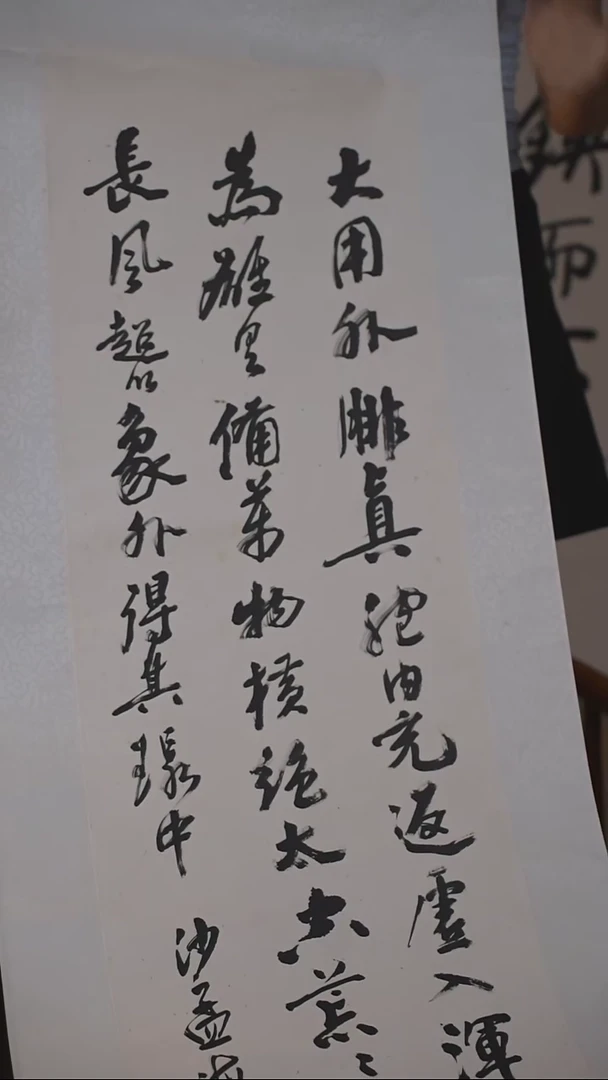 大用外腓真體内充返虛入渾
為雄具備萬物橫絕太空荒〻
長風超以象外得其環中
沙孟海
而